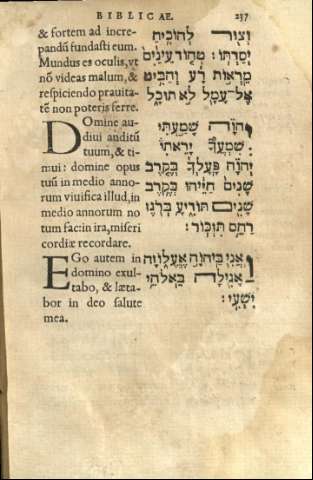 BIBLICAE. 237
& fortem ad incre-
pandū fundasti eum.
Mundus es oculis, vt
nō videas malum, &
respiciendo prauita-
tē non poteris ferre.
DOmine au-
diui auditū
tuum, & ti-
mui: domine opus
tuū in medio anno-
rum viuifica illud, in
medio annorum no
tum facin ira, miseri
cordiæ recordare.
EGo autem in
domino exul-
tabo, & læta-
bor in deo salute
mea.
וְצוּר לְהוֹכִיחַ
יְסַדְתּוֹ: טְהוֹר עֵינַיִם
מֵרְאוֹת רָע וְהַבִּיט
אֶל־עָמָל לֹא תוּכָל
יְהוָֹה שָׁמַעְתִּי
שִׁמְעֲךָ יָרֵאתִי
יְהוָֹה פָּעָלְךָ בְּקֶרֶב
שָׁנִים חַיֵּיהוּ בְּקֶרֶב
שָׁנִים תּוֹדִיעַ בְּרֹגֶז
רַחֵם תִּזְכּוֹר:
וַאֲנִי בַּיהוָֹה אֶעֱלוֹזָה
אָגִילָה בֵּאלֹהֵי
יִשְׁעִי: